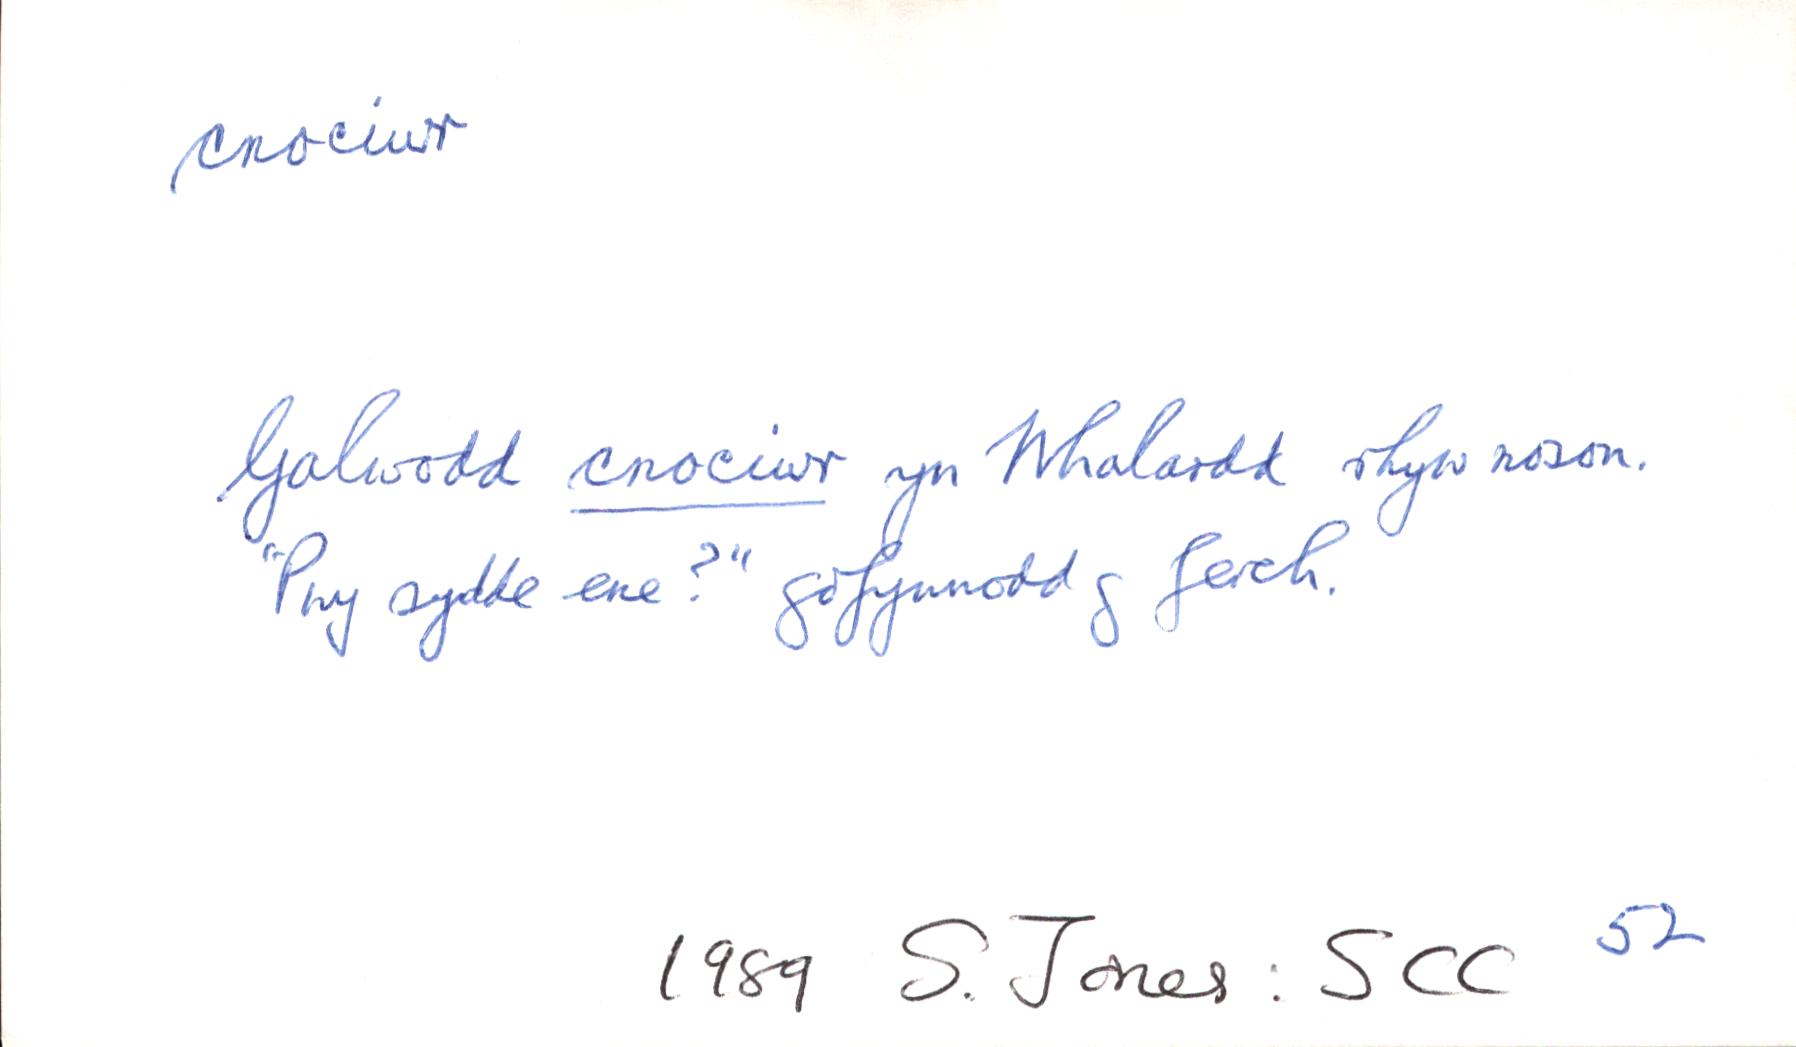 cnociwr
Galwodd cnociwr yn Whalardd rhyw noson.
"Pwy sydde ene?" gofynnodd y ferch.
1989 S. Jones: SCC 52